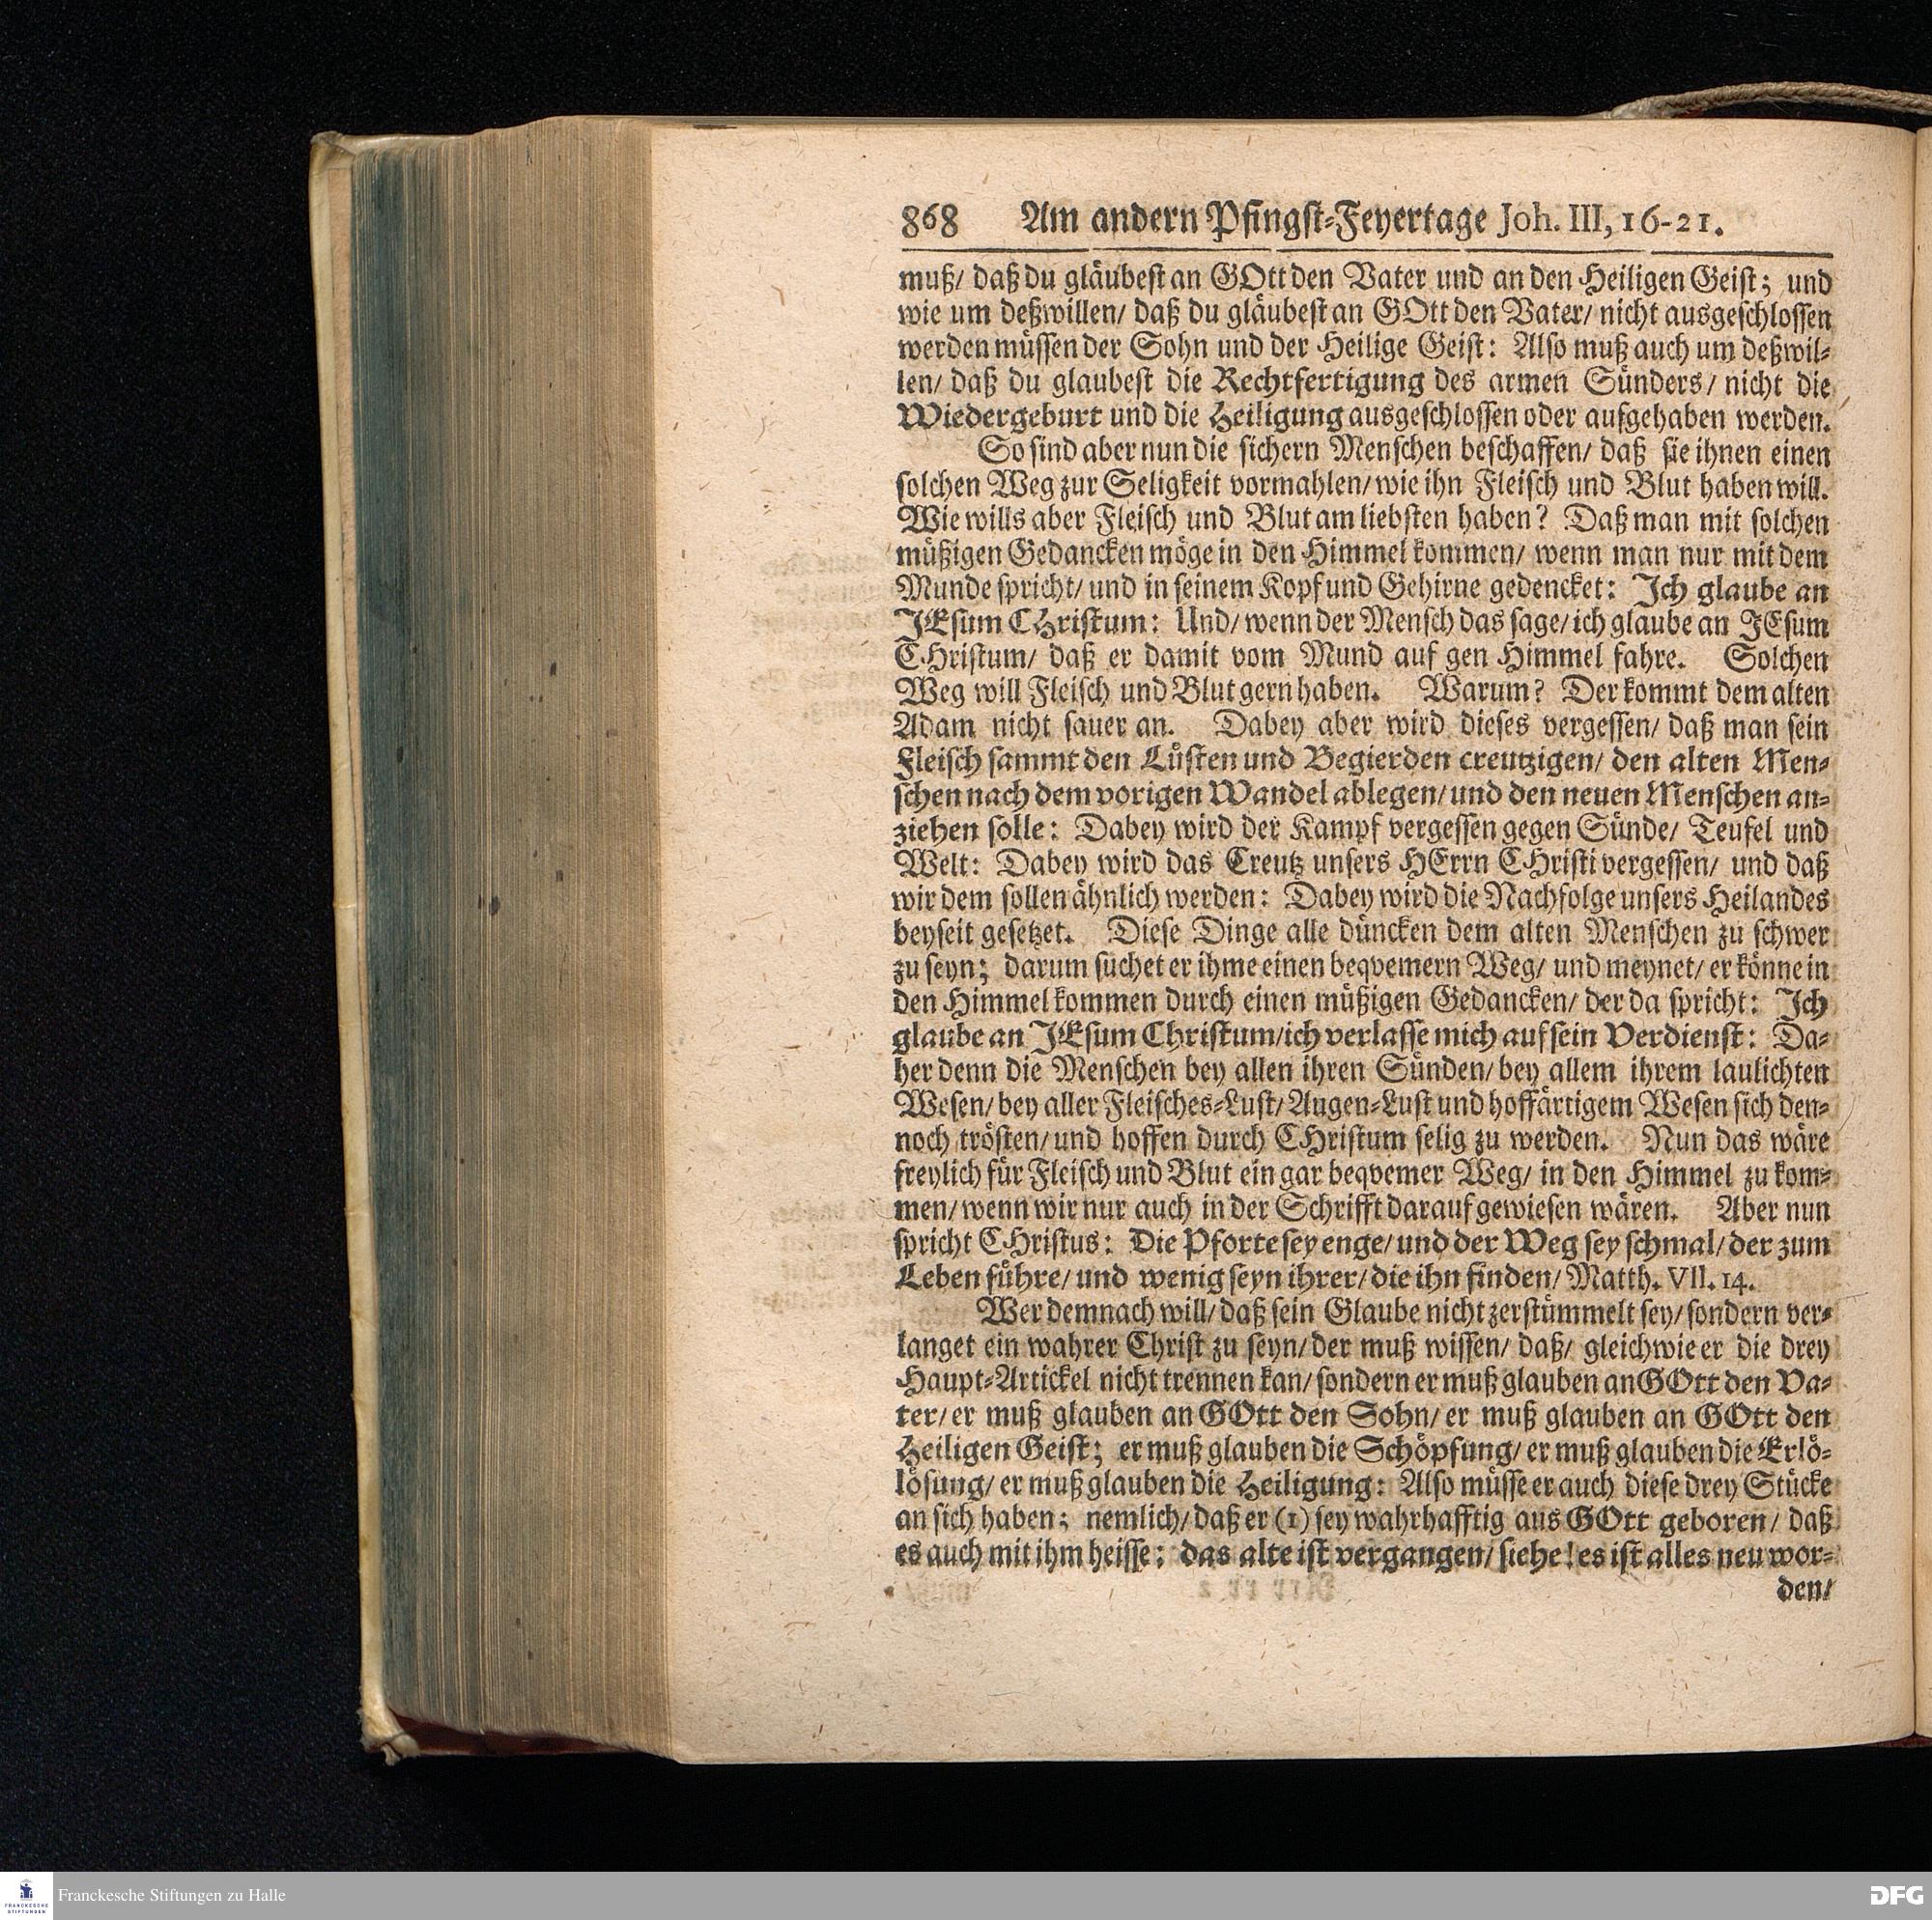 868 Am andern Pfingst-Feyertage Joh. III, 16-21.
muß/ daß du gläubest an GOtt den Vater und an den Heiligen Geist; und
wie um deßwillen/ daß du gläubest an GOtt den Vater/ nicht ausgeschlossen
werden müssen der Sohn und der Heilige Geist: Also muß auch um deßwil-
len/ daß du glaubest die Rechtfertigung des armen Sünders/ nicht die
Wiedergeburt und die Heiligung ausgeschlossen oder aufgehaben werden.
So sind aber nun die sichern Menschen beschaffen/ daß sie ihnen einen
solchen Weg zur Seligkeit vormahlen/ wie ihn Fleisch und Blut haben will.
Wie wills aber Fleisch und Blut am liebsten haben? Daß man mit solchen
müßigen Gedancken möge in den Himmel kommen/ wenn man nur mit dem
Munde spricht/ und in seinem Kopf und Gehirne gedencket: Ich glaube an
JEsum CHristum: Und/ wenn der Mensch das sage/ ich glaube an JEsum
CHristum/ daß er damit vom Mund auf gen Himmel fahre. Solchen
Weg will Fleisch und Blut gern haben. Warum? Der kommt dem alten
Adam nicht sauer an. Dabey aber wird dieses vergessen/ daß man sein
Fleisch sammt den Lüsten und Begierden creutzigen/ den alten Men-
schen nach dem vorigen Wandel ablegen/ und den neuen Menschen an-
ziehen solle: Dabey wird der Kampf vergessen gegen Sünde/ Teufel und
Welt: Dabey wird das Creutz unsers HErrn CHristi vergessen/ und daß
wir dem sollen ähnlich werden: Dabey wird die Nachfolge unsers Heilandes
beyseit gesetzet. Diese Dinge alle düncken dem alten Menschen zu schwer
zu seyn; darum suchet er ihme einen beqvemern Weg/ und meynet/ er könne in
den Himmel kommen durch einen müßigen Gedancken/ der da spricht: Ich
glaube an JEsum Christum/ ich verlasse mich auf sein Verdienst: Da-
her denn die Menschen bey allen ihren Sünden/ bey allem ihrem laulichten
Wesen/ bey aller Fleisches-Lust/ Augen-Lust und hoffärtigem Wesen sich den-
noch trösten/ und hoffen durch CHristum selig zu werden. Nun das wäre
freylich für Fleisch und Blut ein gar beqvemer Weg/ in den Himmel zu kom-
men/ wenn wir nur auch in der Schrifft darauf gewiesen wären. Aber nun
spricht CHristus: Die Pforte sey enge/ und der Weg sey schmal/ der zum
Leben führe/ und wenig seyn ihrer/ die ihn finden/ Matth. VII. 14.
Wer demnach will/ daß sein Glaube nicht zerstümmelt sey/ sondern ver-
langet ein wahrer Christ zu seyn/ der muß wissen/ daß/ gleichwie er die drey
Haupt-Artickel nicht trennen kan/ sondern er muß glauben an GOtt den Va-
ter/ er muß glauben an GOtt den Sohn/ er muß glauben an GOtt den
Heiligen Geist; er muß glauben die Schöpfung/ er muß glauben die Erlö-
lösung/ er muß glauben die Heiligung: Also müsse er auch diese drey Stücke
an sich haben; nemlich/ daß er (1) sey wahrhafftig aus GOtt geboren/ daß
es auch mit ihm heisse: das alte ist vergangen/ siehe! es ist alles neu wor-
den/
FRANCKESCHE
STIFTUNGEN
Franckesche Stiftungen zu Halle
DFG